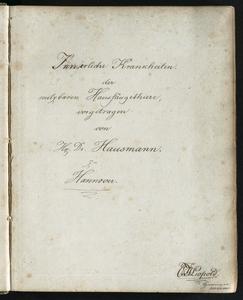 Innerliche Krankheiten
der
nutzbaren Haussäugethiere,
vorgetragen
von
H. Dr. Hausmann.
in
Hannover.
Leopold